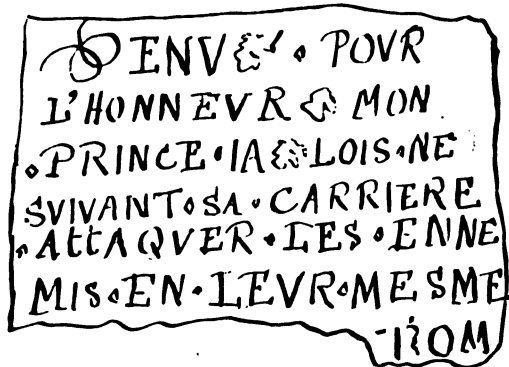 ENV · POVR
L'HONNEVR MON
·PRINCE·IA LOIS·NE
SVIVANT·SA·CARRIERE
·ATTAQVER·LES·ENNE
MIS·EN·LEVR·MESME